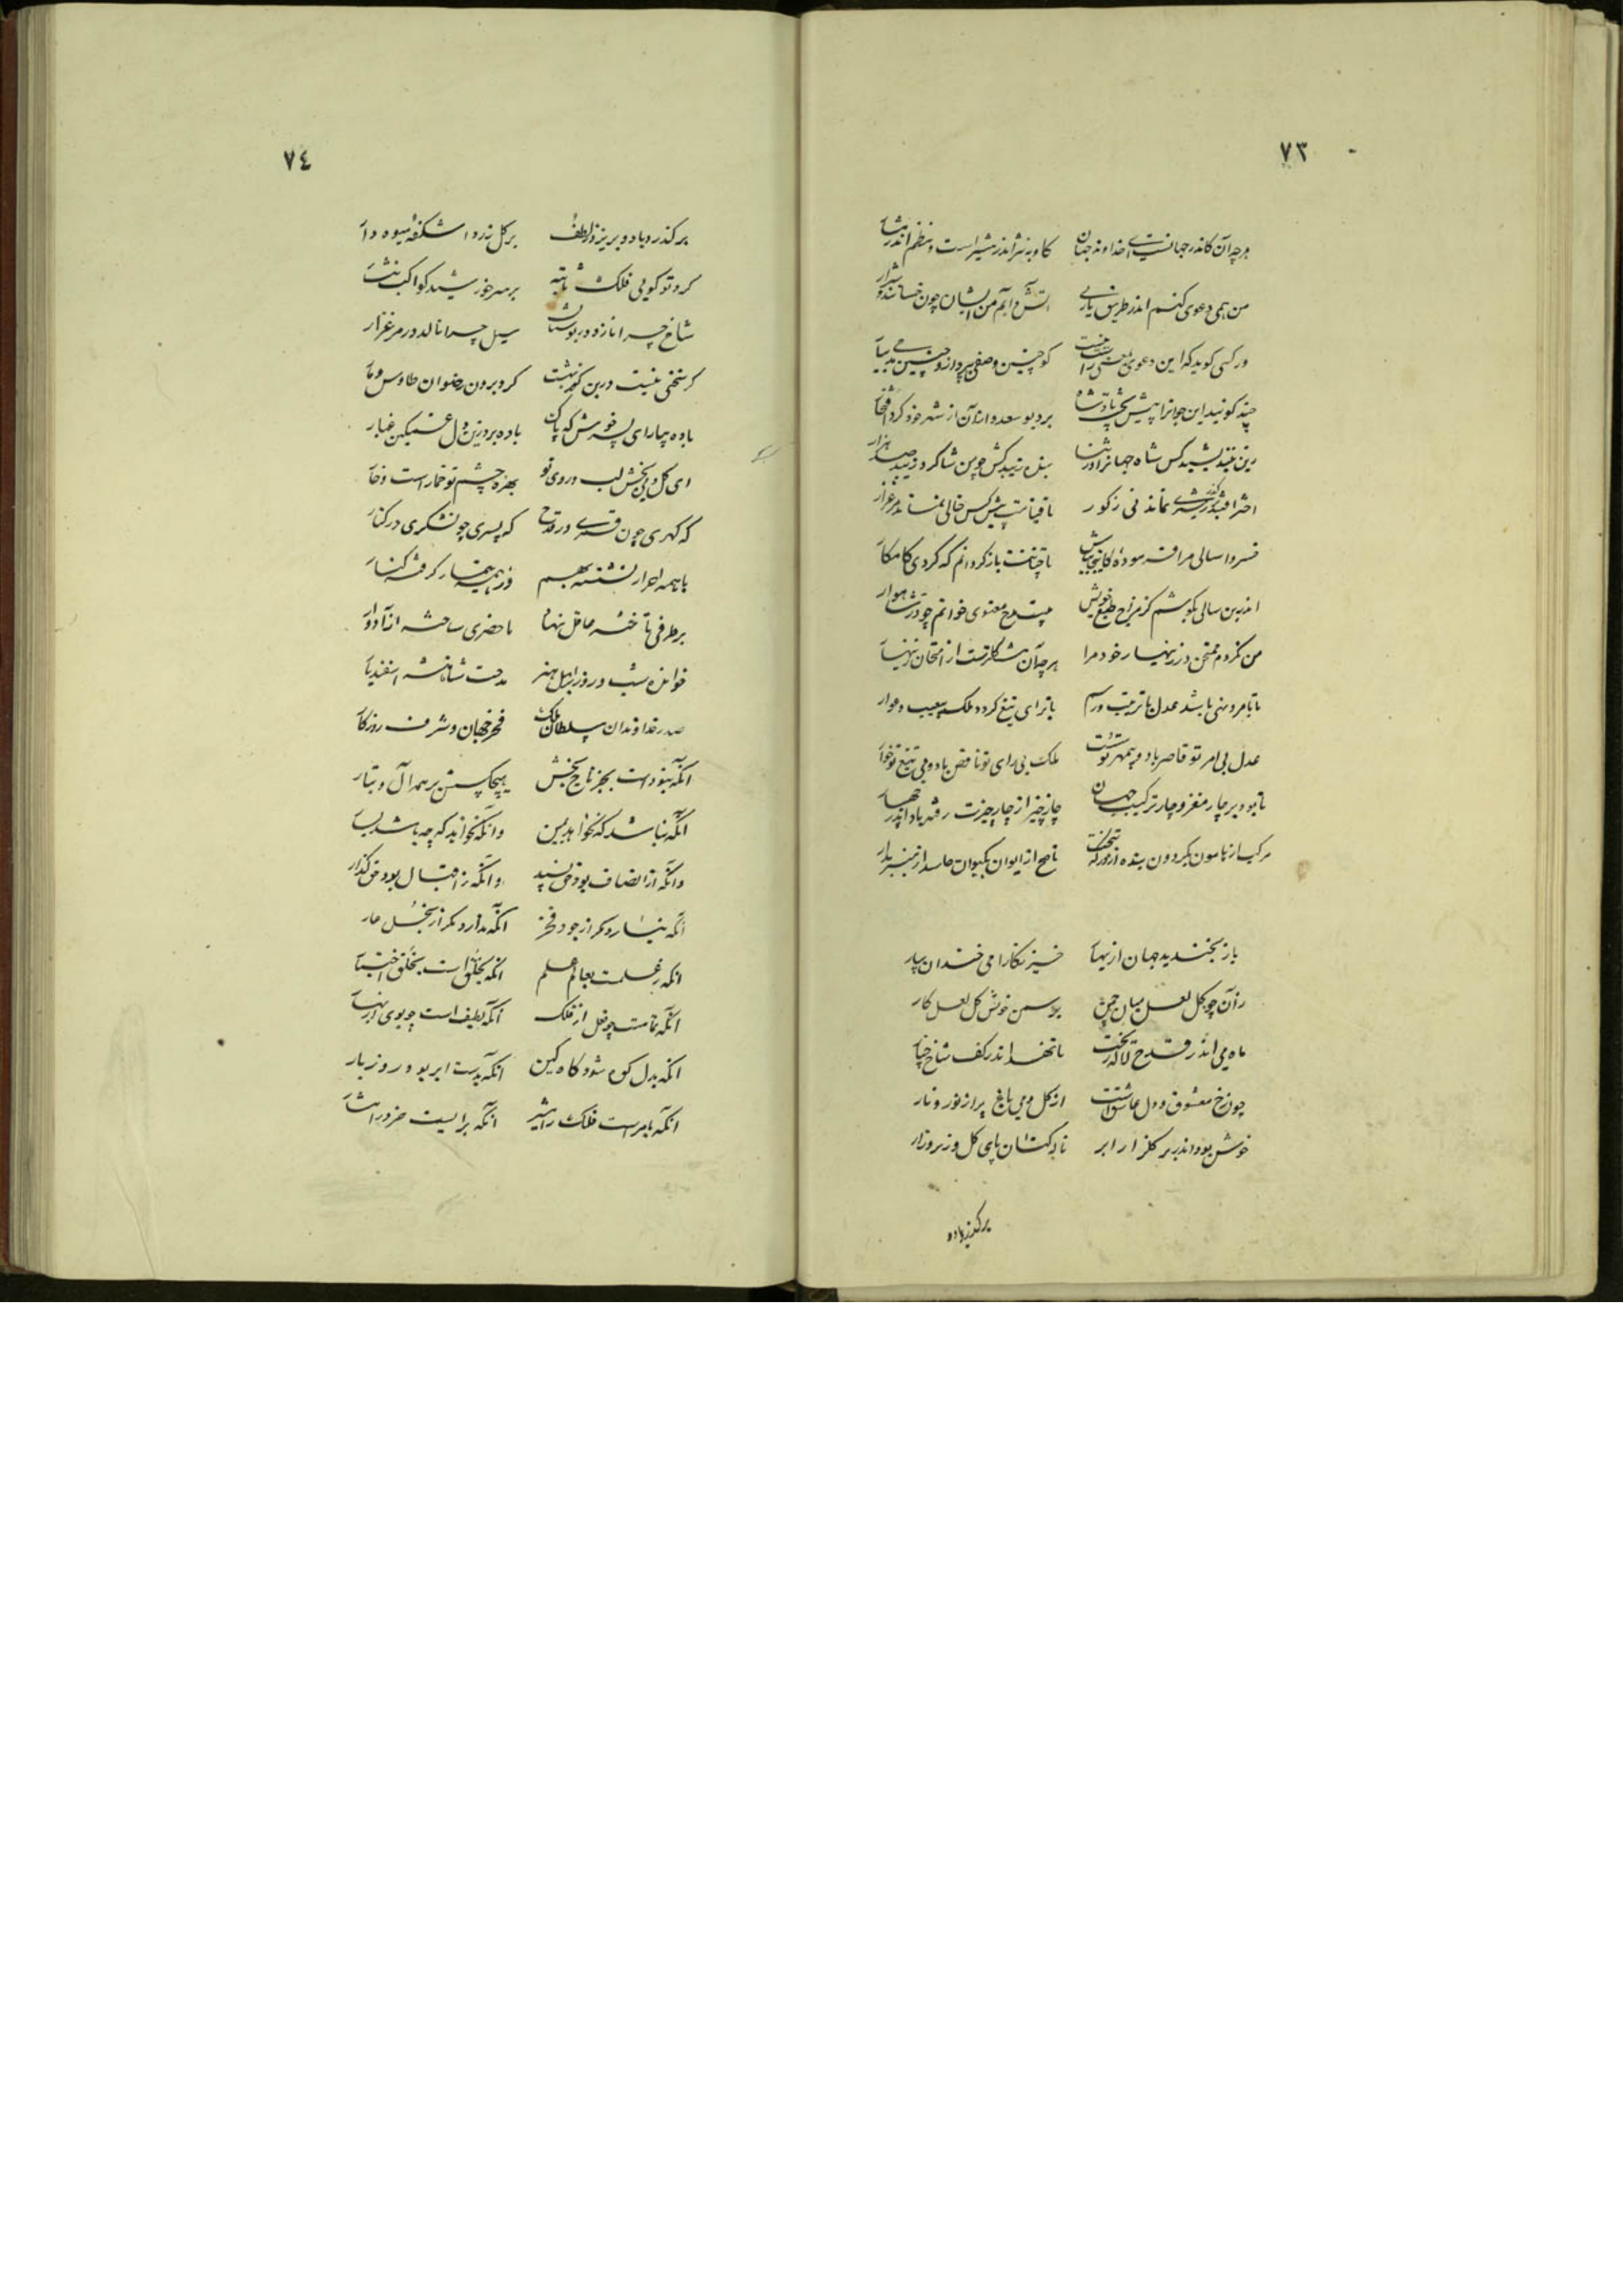 ۷۳
هر چه آن کاندر جهانست ای خداوند جهان کاو به نثر اندر مشیر است و بنظم اندر مشار
من همی دعوی کنم اندر طریق پارسی آتش و آبم من ایشان چون خسانند و شرار
ور کسی گوید که این دعوی کو چنین وصفی بپرداز و چنین مدحی بیار
چند گوئید این جوانرا پیش تخت پادشاه برد بو سعد و از آن از شهر خود کرد افتخار
زین نیندیشید کس شاه جهانرا در ثنا بنده زیبد کش چو من شاگرد زیبد صد هزار
اختر نماند نی ز کور تا قیامت بیشه کس خالی نماند مرغزار
خسروا سالی مرا فرسوده کانجا بباش تا چنانت باز گردانم که گردی کامکار
اندرین سالی بکوشم کز مزاج طبع خویش مدح معنوی خوانم چو در شاهوار
من نکردم ممتحن در زینهار خود مرا هر چه آن مشکلترست از امتحان زینهار
تا با مر و نهی باشد عدل با ترتیب و رسم با برای تیغ گردد ملک بی عیب و عوار
عدل بی امر تو قاصر باد و بی مهر تو سست ملک بی رای تو ناقص باد و بی تیغ تو خوار
تا بود بر چار مغز و چار ترکیب جهان چار چیز از چار چیزت رفته باد اندر چهار
مرکب از هامون بگردون بنده از درگه بتخت ناصح از ایوان بکیوان حاسد از منبر بدار
باز بخندید جهان از بهار خیز نگارا می خندان بیار
زان چو گل لعل میان چمن بر سمن خوش گل لعل کار
ماه می اندر قدح لاله ریخت تا نهد اندر کف شاخ چنار
چون رخ معشوق و دل عاشق است از گل و می باغ پر از نور و نار
خوش بود اندر بر گلزار ابر ناله کشان پای گل و زیر و زار
بر گذرد باد
۷٤
بر گذرد باد و بریزد ز لطف بر گل زرد اشکفه میوه دار
گردد گویی فلک ثابته بر سر خورشید کواکب نثار
شاخ چرا نازد در بوستان سیل چرا نالد در مرغزار
گر سختی نیست درین گفت بهشت کرد برون رضوان طاوس و مار
باده بیار ای پسر خوش که پاک باده برد زین دل غمگین غبار
ای گل و می بخش لب و روی تو بهره چشم تو خمار است و خار
گه گهری چون قمری در قدح گه پسری چون شکری در کنار
با همه احرار نشسته بهم وز همه تیمار گرفته کنار
بر طرفی تاخته محمل نهان ماحضری ساخته از آب دار
خوانده شب و روز بر اهل هنر مدحت شاهنشه اسفندیار
صدر خداوندان سلطان ملک فخر جهان و شرف روزگار
آنکه نبوده است بجز تاج بخش هیچکس پیش ز همه آل و تبار
آنکه نباشد که نخواهد یمین وانکه نخواند که چه باشد یسار
وانکه از انصاف بود حق پسند وانکه ز اقبال بود حق گذار
آنکه نیارد مگر از جود فخر آنکه ندارد مگر از بخل عار
آنکه ز علمست بعالم علم آنکه بخلق است ز خلق اختیار
آنکه تمامست چو فعل از فلک آنکه لطیف است چو بوی از بهار
آنکه بدل کوه شود گاه کین آنکه بدست ابر بود روز بار
آنکه بامر است فلک را مشیر آنکه برایست خرد را مشار